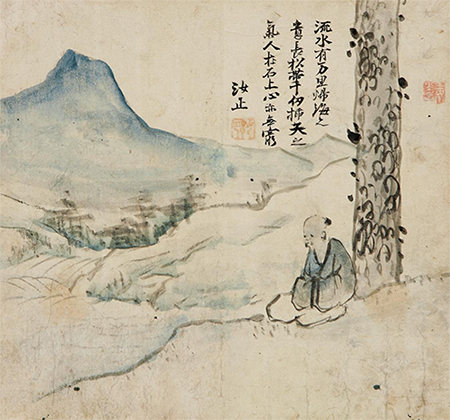 流水有万里歸海之
意長松千仞拂天之
氣人在石上心亦無窮
汝正